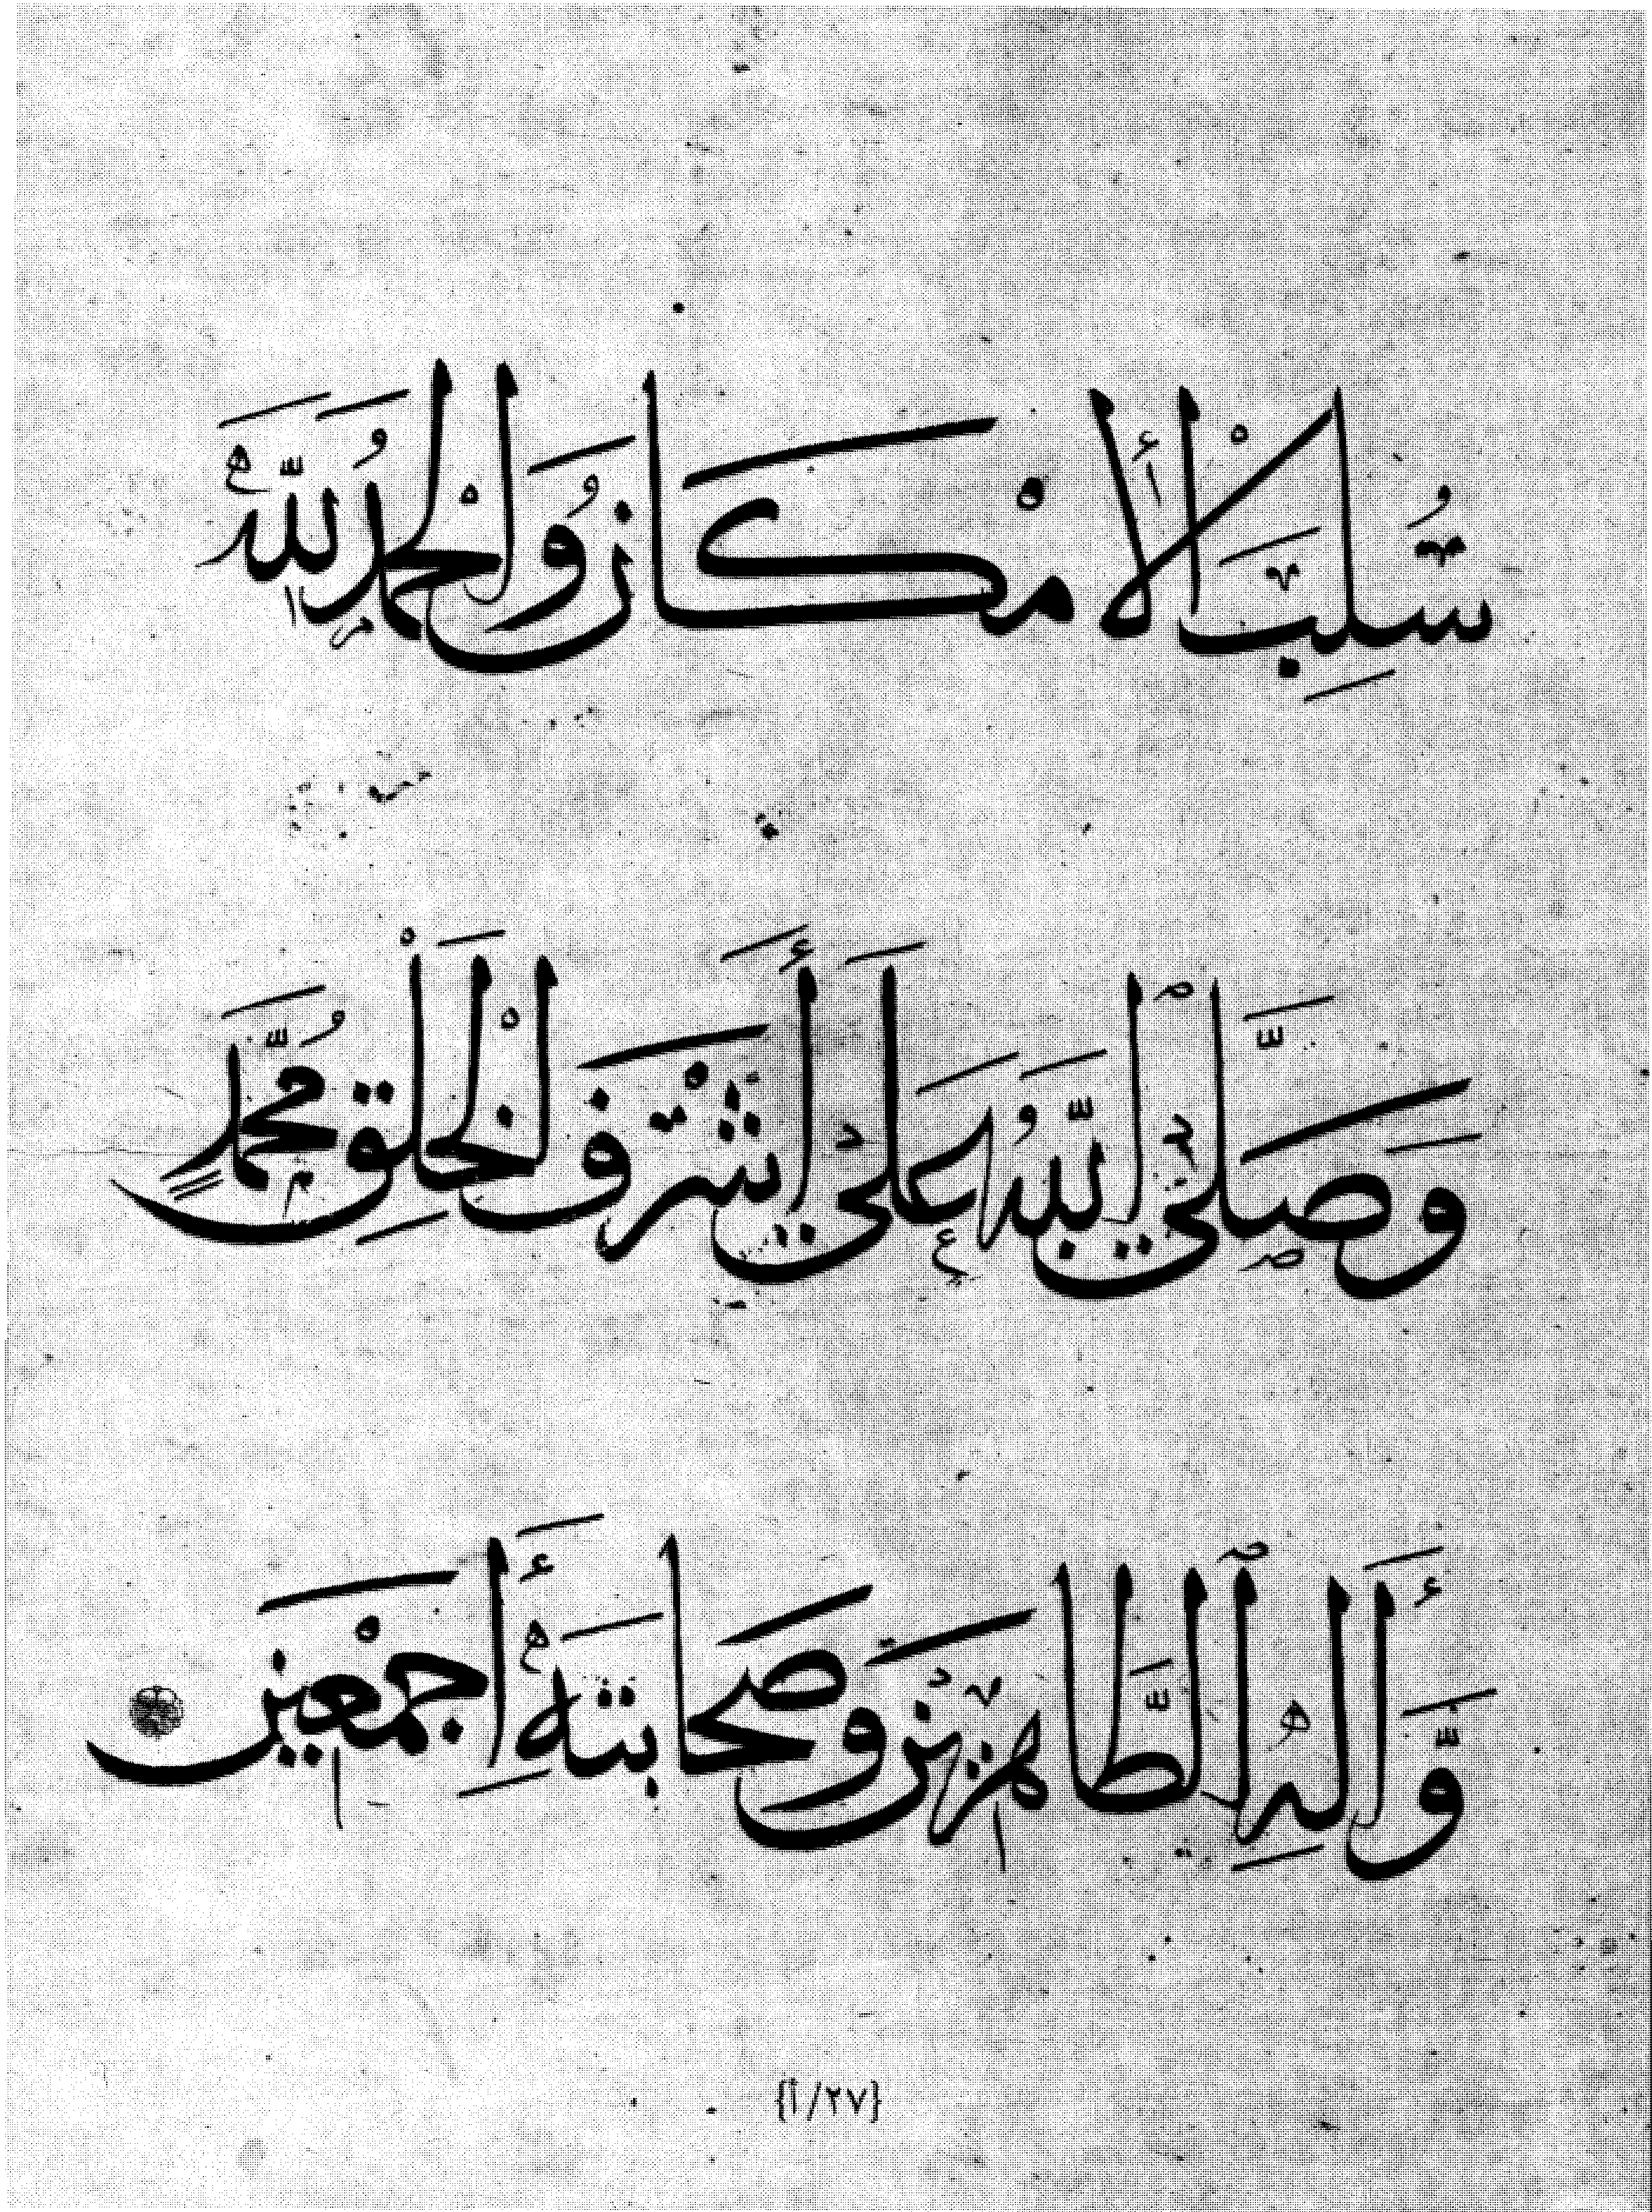 سُلِبَ الْأَمْكَانُ وَالْحَمْدُ لِلّٰهِ
وَصَلَّى اللّٰهُ عَلَى أَشْرَفِ الْخَلْقِ مُحَمَّدٍ
وَّأَلِهِ الطَّاهِرِيْنَ وَصَحَابَتِهِ أَجْمَعِيْنَ
{٢٧/أ}